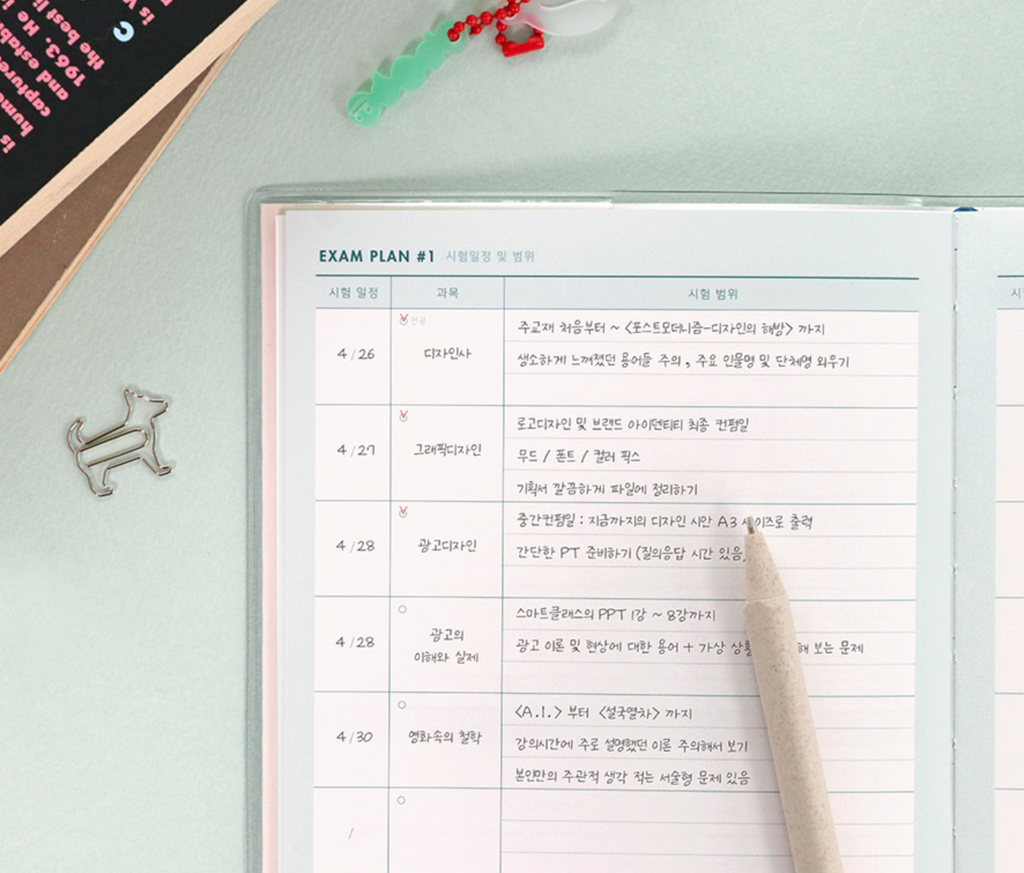 is
the best li
1963. He i
and estab
capture
hum
is
EXAM PLAN #1 시험일정 및 범위
시험 일정 과목 시험 범위
전공
4/26 디자인사
주교재 처음부터 ~ <포스트모더니즘-디자인의 해방> 까지
생소하게 느껴졌던 용어들 주의, 주요 인물명 및 단체명 외우기
4/27 그래픽디자인
로고디자인 및 브랜드 아이덴티티 최종 컨펌일
무드 / 폰트 / 컬러 픽스
기획서 깔끔하게 파일에 정리하기
4/28 광고디자인
중간컨펌일 : 지금까지의 디자인 시안 A3 사이즈로 출력
간단한 PT 준비하기 (질의응답 시간 있음
4/28 광고의
이해와 실제
스마트클래스의 PPT 1강 ~ 8강까지
광고 이론 및 현상에 대한 용어 + 가상 해 보는 문제
4/30 영화속의 철학
<A.I.> 부터 <설국열차> 까지
강의시간에 주로 설명했던 이론 주의해서 보기
본인만의 주관적 생각 적는 서술형 문제 있음
/